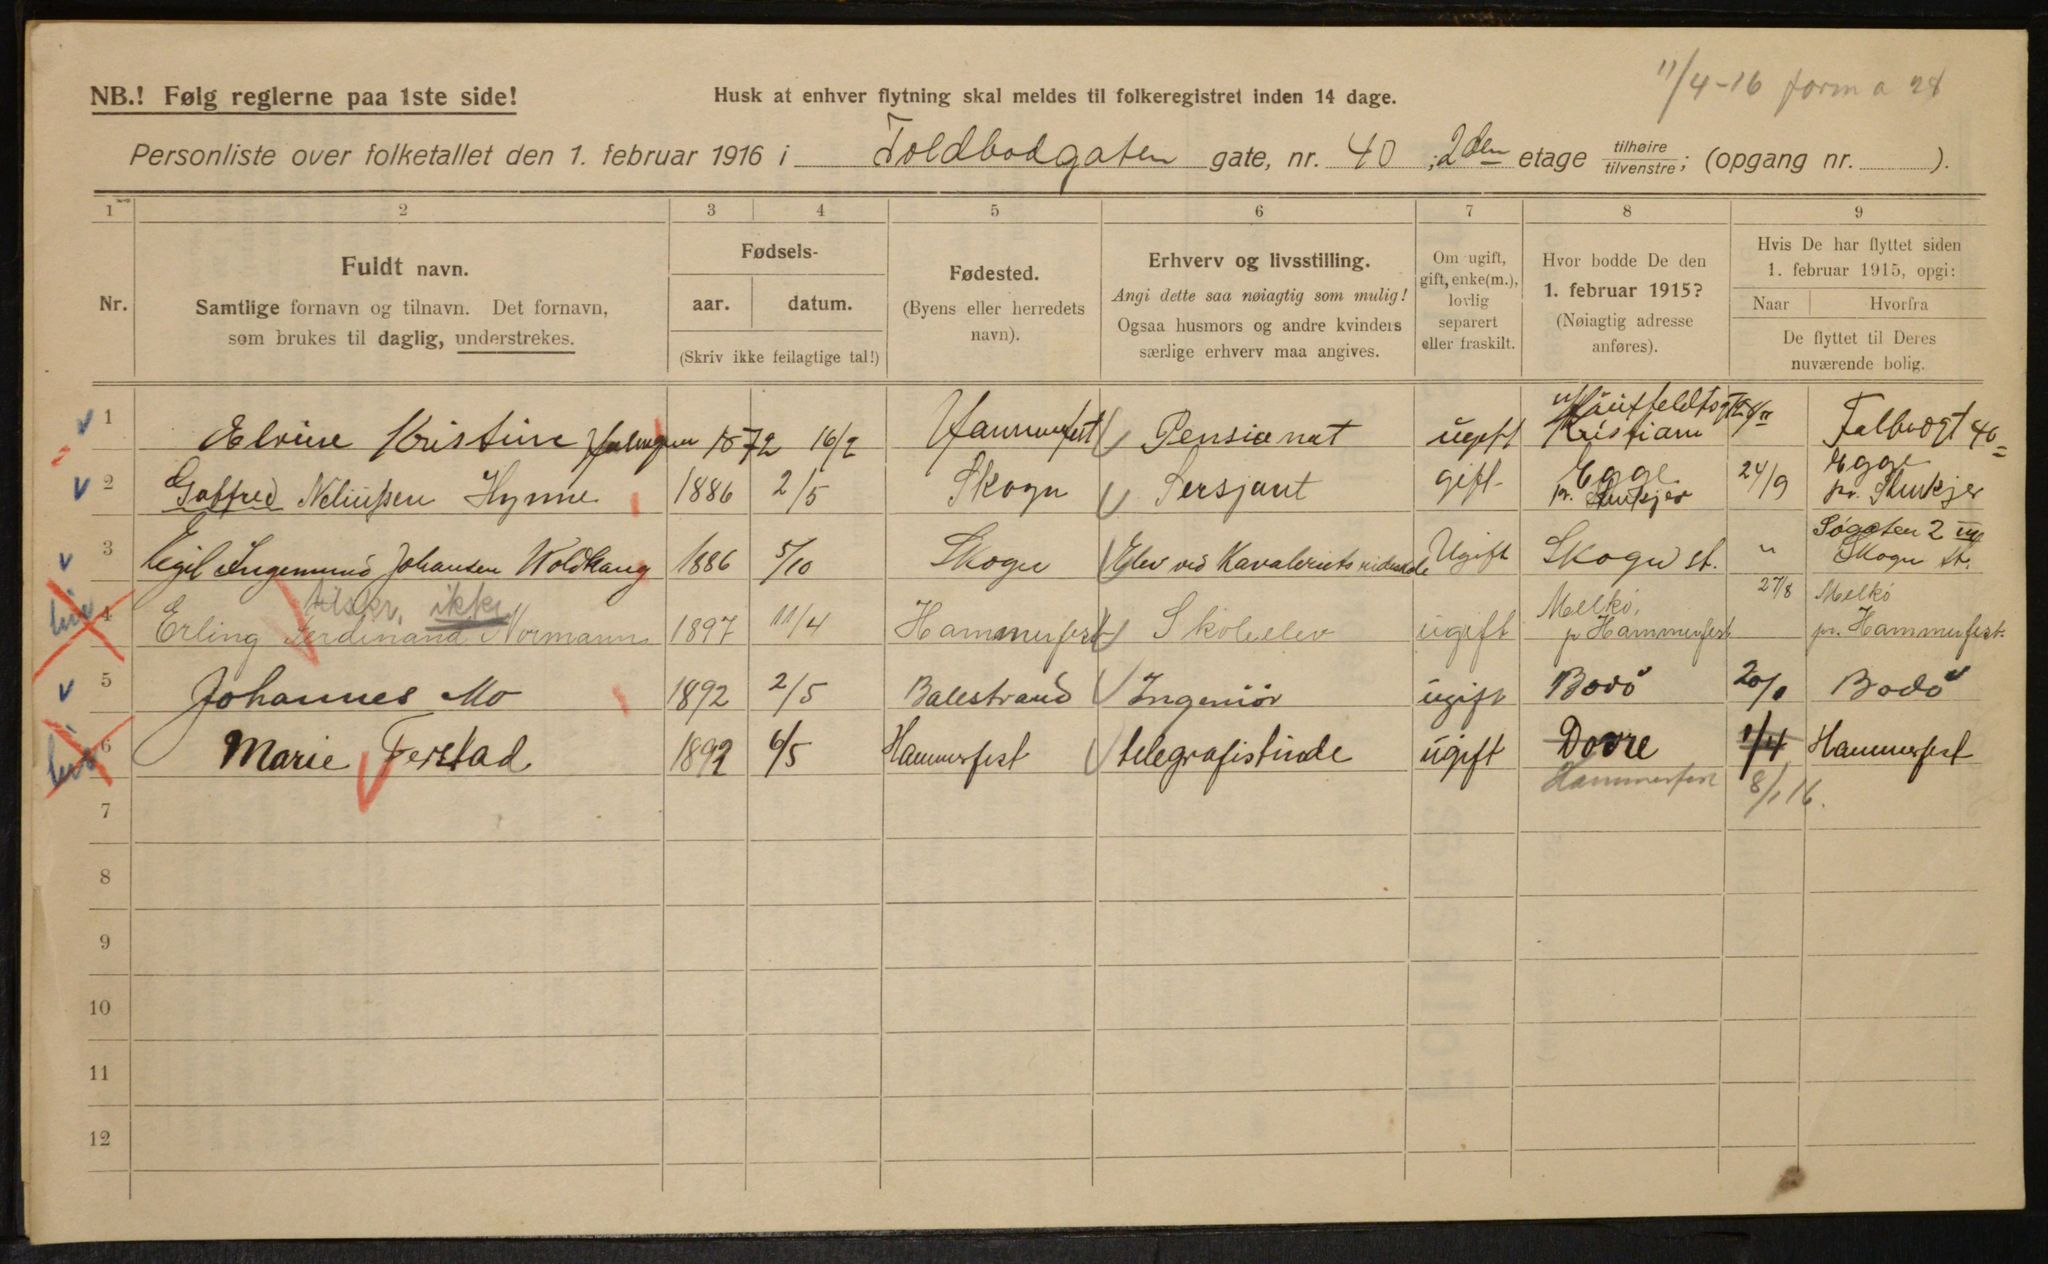 11/4-16 form a 28
NB.! Følg reglerne paa 1ste side! Husk at enhver flytning skal meldes til folkeregistret inden 14 dage.
Personliste over folketallet den 1. februar 1916 i Toldbodgaten gate, nr. 40; 2den etage tilhøire/tilvenstre; (opgang nr. ).
1 2 3 4 5 6 7 8 9
Nr.
Fuldt navn.
Samtlige fornavn og tilnavn. Det fornavn,
som brukes til daglig, understrekes.
Fødsels-
aar. datum.
(Skriv ikke feilagtige tal!)
Fødested.
(Byens eller herredets
navn).
Erhverv og livsstilling.
Angi dette saa nøiagtig som mulig!
Ogsaa husmors og andre kvinders
særlige erhverv maa angives.
Om ugift,
gift, enke(m.),
lovlig
separert
eller fraskilt.
Hvor bodde De den
1. februar 1915?
(Nøiagtig adresse
anføres).
Hvis De har flyttet siden
1. februar 1915, opgi:
Naar Hvorfra
De flyttet til Deres
nuværende bolig.
1 Elvine Kristine 1872 16/2 Hammerfest Pensionat ugift Kristiania 40
2 Gotfred Neliussen Hynne 1886 2/5 Skogn Sersjant gift Egge pr. Stenkjer 24/9 Egge pr. Stenkjer
3 Egil Ingemund Johansen Woldkaug 1886 5/10 Skogn Elev ved Kavaleriets Ugift Skogn st. " Søgaten 2 Skogn st.
tilskr. ikke
4 Erling Ferdinand Normann 1897 11/4 Hammerfest Skoleelev ugift Melkö, p Hammerfest 27/8 Melkö pr. Hammerfest.
5 Johannes Mo 1892 2/5 Balestrand Ingeniör ugift Bodö Bodö
6 Marie Ferstad 1892 6/5 Hammerfest telegrafistinde ugift Dovre 1/4 Hammerfest
Hammerfest 8/1 16.
7
8
9
10
11
12